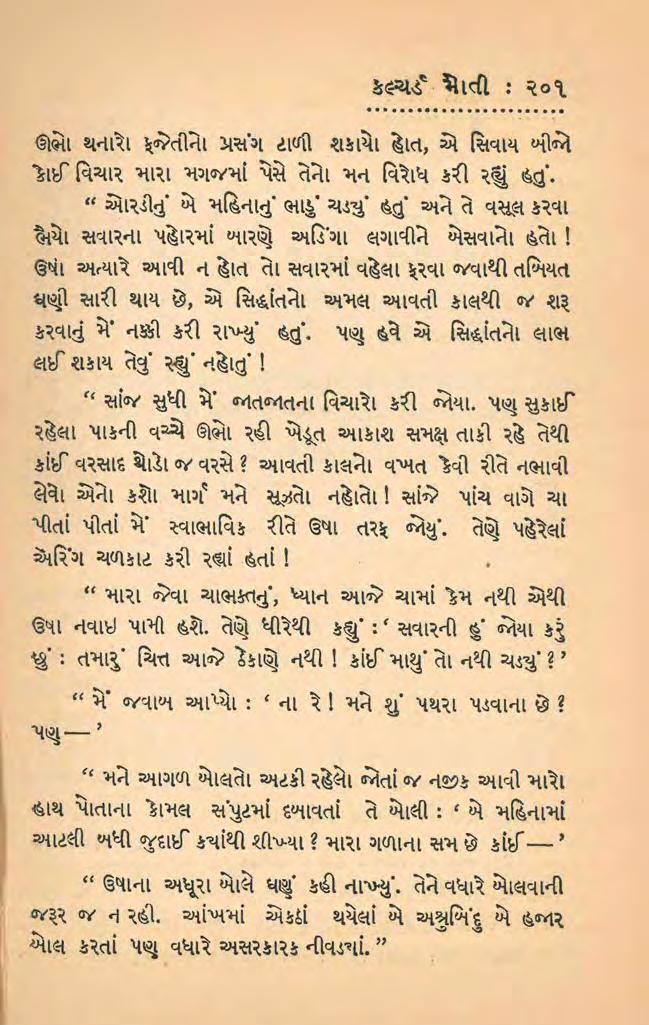 કલ્ચર્ડ મોતી : ૨૦૧
ઊભો થનારો ફજેતીનો પ્રસંગ ટાળી શકાયો હોત, એ સિવાય બીજો
કોઈ વિચાર મારા મગજમાં પેસે તેનો મન વિરોધ કરી રહ્યું હતું.
“ ઓરડીનું બે મહિનાનું ભાડું ચડ્યું હતું અને તે વસૂલ કરવા
ભૈયો સવારના પહોરમાં બારણે અડિંગા લગાવીને બેસવાનો હતો !
ઉષા અત્યારે આવી ન હોત તો સવારમાં વહેલા ફરવા જવાથી તબિયત
ઘણી સારી થાય છે, એ સિદ્ધાંતનો અમલ આવતી કાલથી જ શરૂ
કરવાનું મેં નક્કી કરી રાખ્યું હતું. પણ હવે એ સિદ્ધાંતનો લાભ
લઈ શકાય તેવું રહ્યું નહોતું !
“ સાંજ સુધી મેં જાતજાતના વિચારો કરી જોયા. પણ સુકાઈ
રહેલા પાકની વચ્ચે ઊભો રહી ખેડૂત આકાશ સમક્ષ તાકી રહે તેથી
કાંઈ વરસાદ થોડો જ વરસે ? આવતી કાલનો વખત કેવી રીતે નભાવી
લેવો એનો કશો માર્ગ મને સૂઝતો નહોતો ! સાંજે પાંચ વાગે ચા
પીતાં પીતાં મેં સ્વાભાવિક રીતે ઉષા તરફ જોયું. તેણે પહેરેલાં
ઍરિંગ ચળકાટ કરી રહ્યાં હતાં !
“ મારા જેવા ચાભક્તનું, ધ્યાન આજે ચામાં કેમ નથી એથી
ઉષા નવાઇ પામી હશે. તેણે ધીરેથી કહ્યું : ‘ સવારની હું જોયા કરું
છું : તમારું ચિત્ત આજે ઠેકાણે નથી ! કાંઈ માથું તો નથી ચડ્યું ? ’
“ મેં જવાબ આપ્યો : ‘ ના રે ! મને શું પથરા પડવાના છે ?
પણ — ’
“ મને આગળ બોલતો અટકી રહેલો જોતાં જ નજીક આવી મારો
હાથ પોતાના કોમલ સંપુટમાં દબાવતાં તે બોલી : ‘ બે મહિનામાં
આટલી બધી જુદાઈ ક્યાંથી શીખ્યા ? મારા ગળાના સમ છે કાંઈ — ’
“ ઉષાના અધૂરા બોલે ઘણું કહી નાખ્યું. તેને વધારે બોલવાની
જરૂર જ ન રહી. આંખમાં એકઠાં થયેલાં બે અશ્રુબિંદુ બે હજાર
બોલ કરતાં પણ વધારે અસરકારક નીવડ્યાં. ”